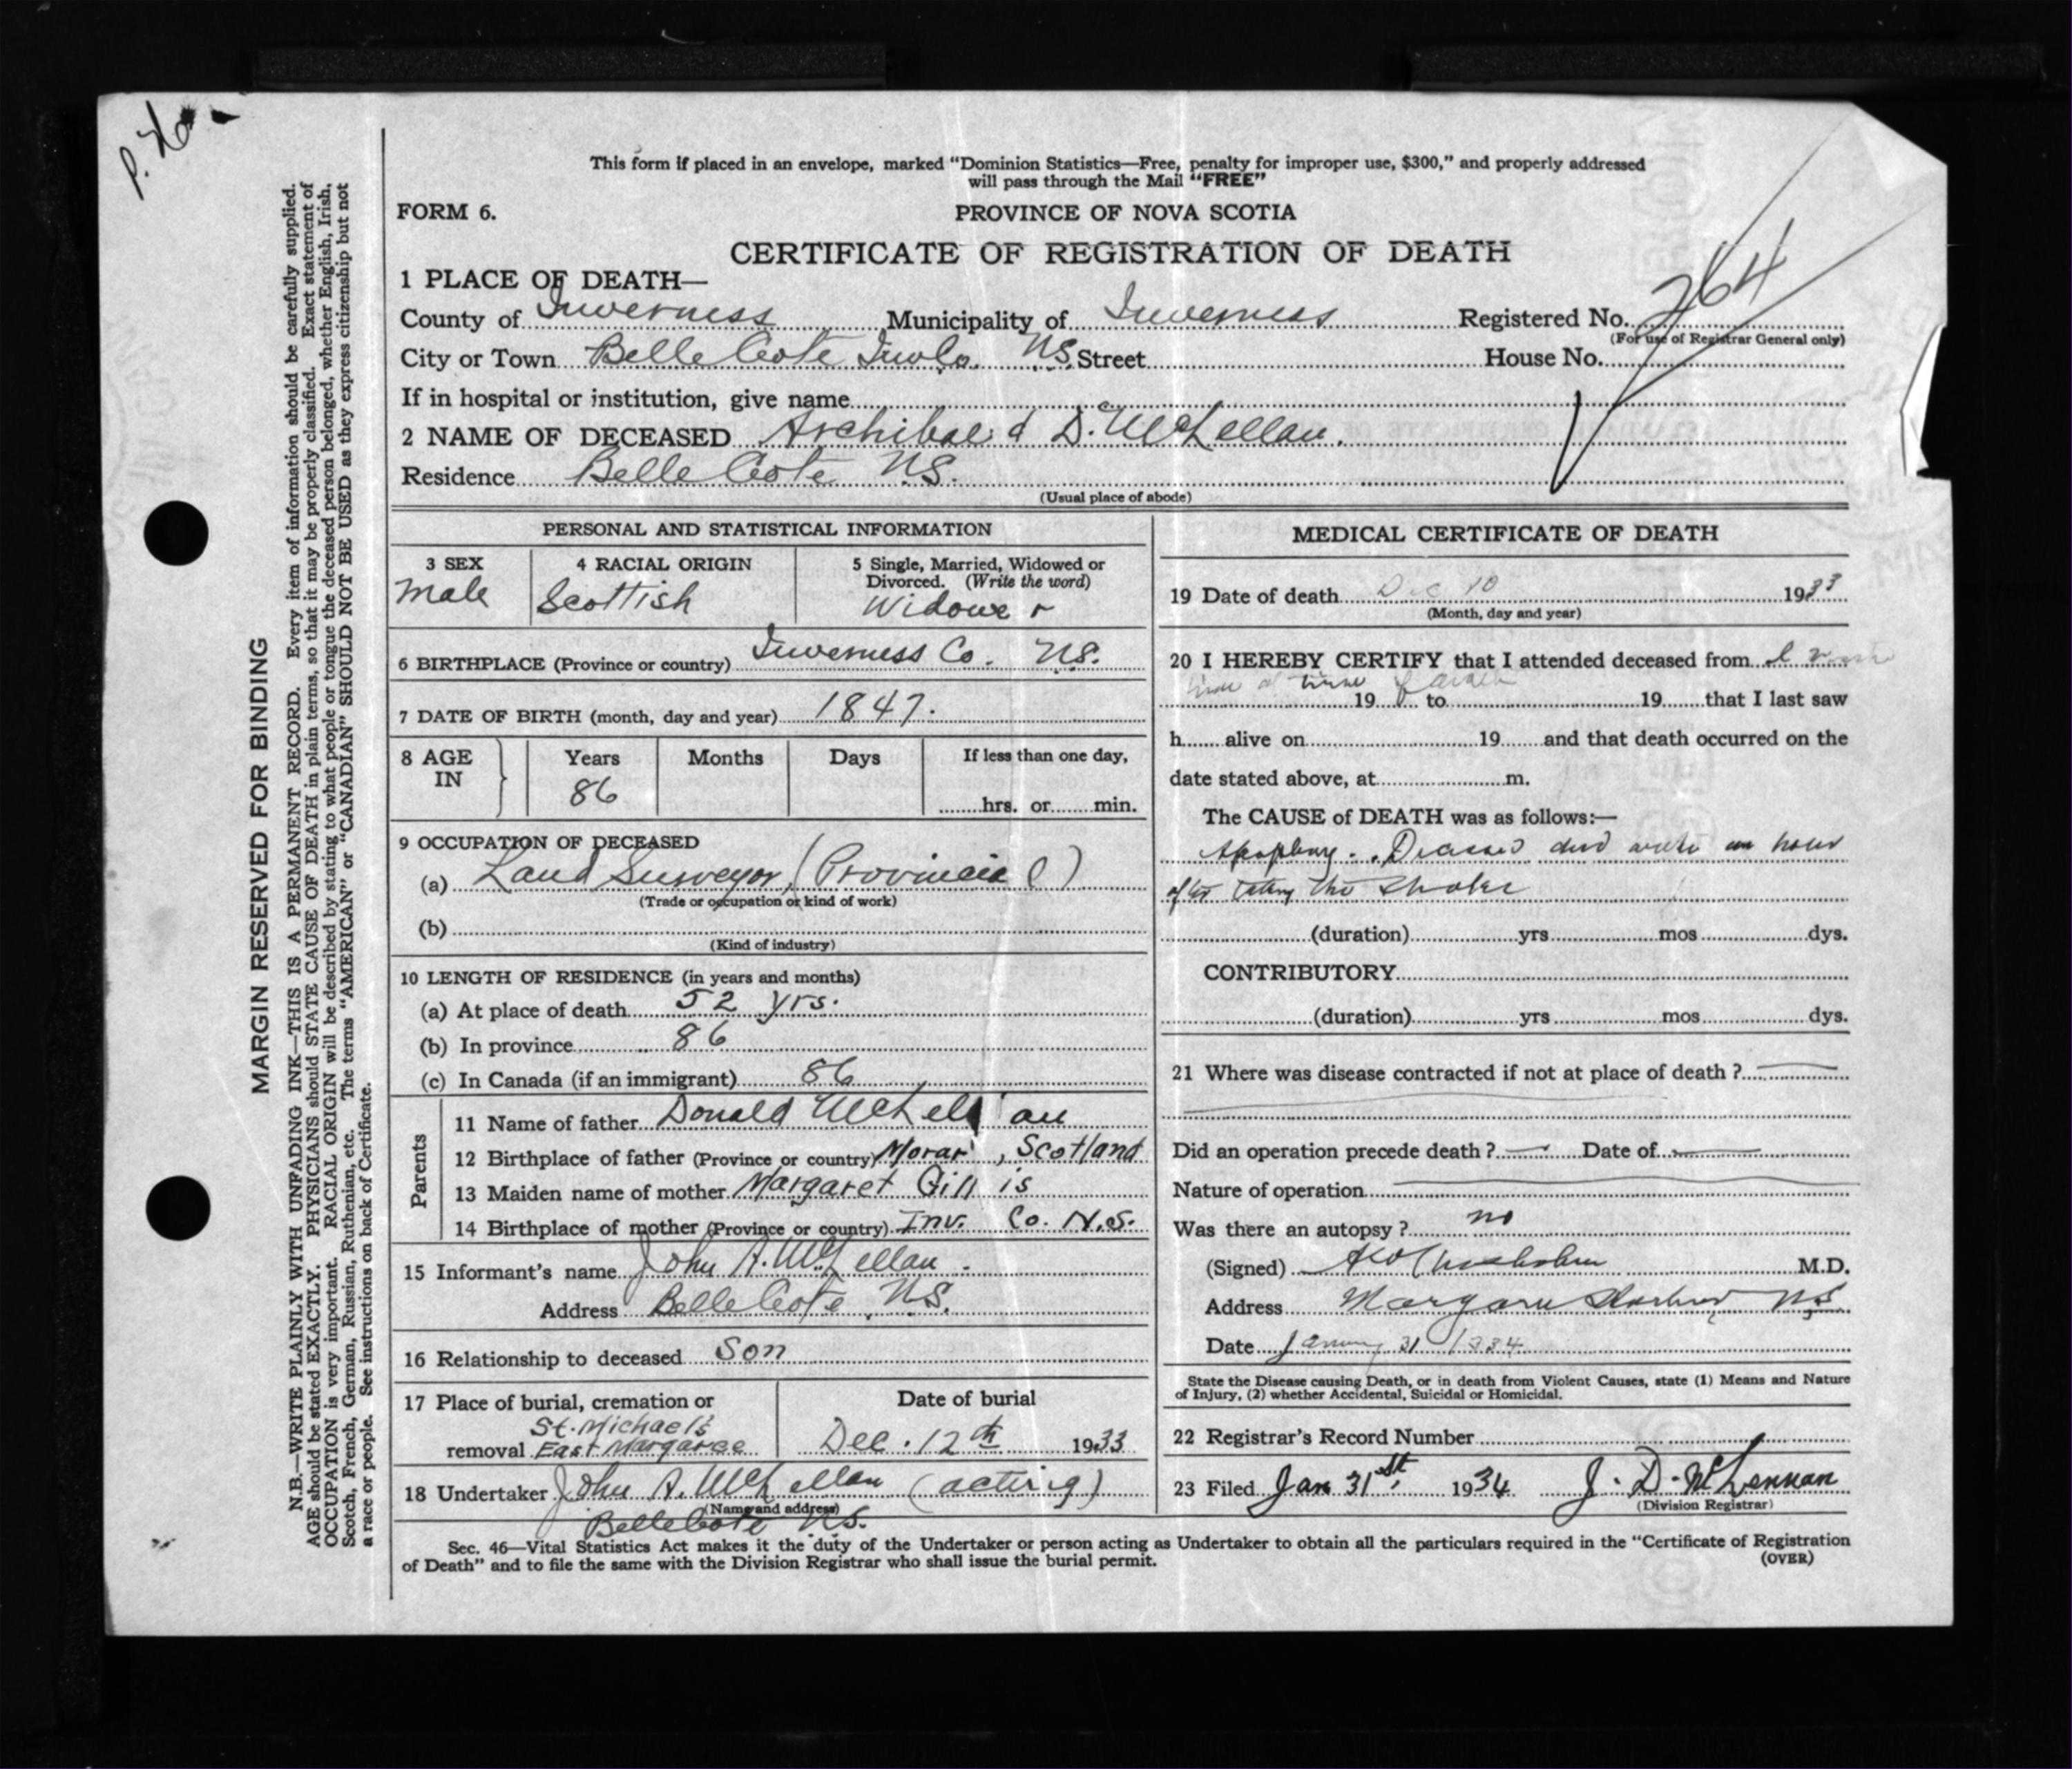 P. 26
This form if placed in an envelope, marked “Dominion Statistics—Free, penalty for improper use, $300,” and properly addressed
will pass through the Mail “FREE”
FORM 6.
PROVINCE OF NOVA SCOTIA
CERTIFICATE OF REGISTRATION OF DEATH
1 PLACE OF DEATH—
County of Inverness Municipality of Inverness Registered No. 264
(For use of Registrar General only)
City or Town Belle Cote Inv Co. N.S. Street House No.
If in hospital or institution, give name
2 NAME OF DECEASED Archibald D. McLellan.
Residence Belle Cote N.S.
(Usual place of abode)
PERSONAL AND STATISTICAL INFORMATION
3 SEX
Male
4 RACIAL ORIGIN
Scottish
5 Single, Married, Widowed or
Divorced. (Write the word)
Widower
6 BIRTHPLACE (Province or country) Inverness Co. N.S.
7 DATE OF BIRTH (month, day and year) 1847.
8 AGE IN
Years Months Days If less than one day,
86 hrs. or min.
9 OCCUPATION OF DECEASED
(a) Land Surveyor, (Provincial)
(Trade or occupation or kind of work)
(b)
(Kind of industry)
10 LENGTH OF RESIDENCE (in years and months)
(a) At place of death 52 yrs.
(b) In province 86
(c) In Canada (if an immigrant) 86
Parents
11 Name of father Donald McLellan
12 Birthplace of father (Province or country) Morar, Scotland
13 Maiden name of mother Margaret Gillis
14 Birthplace of mother (Province or country) Inv. Co. N.S.
15 Informant's name John A. McLellan.
Address Belle Cote, N.S.
16 Relationship to deceased Son
17 Place of burial, cremation or
removal St. Michael's
East Margaree
Date of burial
Dec. 12th 1933
18 Undertaker John A. McLellan (acting)
(Name and address)
Belle Cote N.S.
MEDICAL CERTIFICATE OF DEATH
19 Date of death Dec 10 1933
(Month, day and year)
20 I HEREBY CERTIFY that I attended deceased from I
time of death
19 to 19 that I last saw
h alive on 19 and that death occurred on the
date stated above, at m.
The CAUSE of DEATH was as follows:—
Apoplexy. Deceased died within an hour
after taking the stroke
(duration) yrs mos dys.
CONTRIBUTORY
(duration) yrs mos dys.
21 Where was disease contracted if not at place of death ?
Did an operation precede death ? Date of
Nature of operation
Was there an autopsy ? no
(Signed) Chisholm M.D.
Address Margaree Harbour N.S.
Date January 31 1934
State the Disease causing Death, or in death from Violent Causes, state (1) Means and Nature
of Injury, (2) whether Accidental, Suicidal or Homicidal.
22 Registrar's Record Number
23 Filed Jan 31st, 1934 J. D. McLennan
(Division Registrar)
Sec. 46—Vital Statistics Act makes it the duty of the Undertaker or person acting as Undertaker to obtain all the particulars required in the “Certificate of Registration
of Death” and to file the same with the Division Registrar who shall issue the burial permit.
(OVER)
MARGIN RESERVED FOR BINDING
N.B.—WRITE PLAINLY WITH UNFADING INK—THIS IS A PERMANENT RECORD. Every item of information should be carefully supplied.
AGE should be stated EXACTLY. PHYSICIANS should STATE CAUSE OF DEATH in plain terms, so that it may be properly classified. Exact statement of
OCCUPATION is very important. RACIAL ORIGIN will be described by stating to what people or tongue the deceased person belonged, whether English, Irish,
Scotch, French, German, Russian, Ruthenian, etc. The terms “AMERICAN” or “CANADIAN” SHOULD NOT BE USED as they express citizenship but not
a race or people. See instructions on back of Certificate.